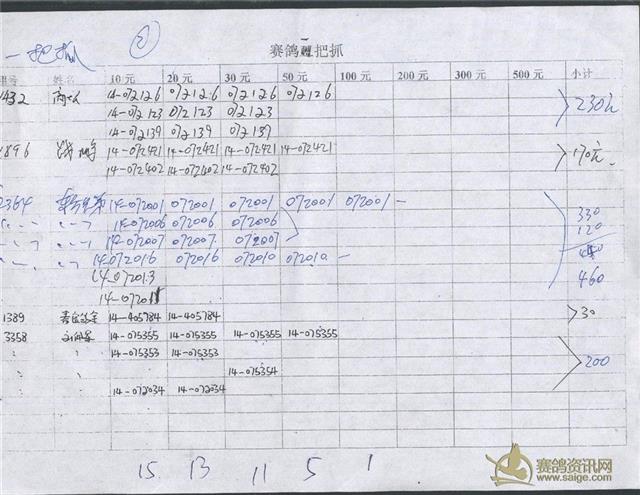 一把抓 ②
赛鸽一把抓
姓名 10元 20元 30元 50元 100元 200元 300元 500元 小计
1432 14-072126 072126 072126 072126
14-072123 072123 072123 230元
14-072139 072139 072139
1896 14-072421 14-072421 14-072421 14-072421 170元
14-072402 14-072402 14-072402
2364 14-072001 072001 072001 072001 072001
14-072006 072006 072006 330
14-072007 072007 072007 120
14-072016 072016 072010 072010
14-072013 460
14-07201
1389 14-405784 14-405784 30
3358 14-075355 14-075355 14-075355 14-075355
14-075353 14-075353
14-075354 200
14-072034 14-072034
15 13 11 5 1
赛鸽资讯网
www.saige.com